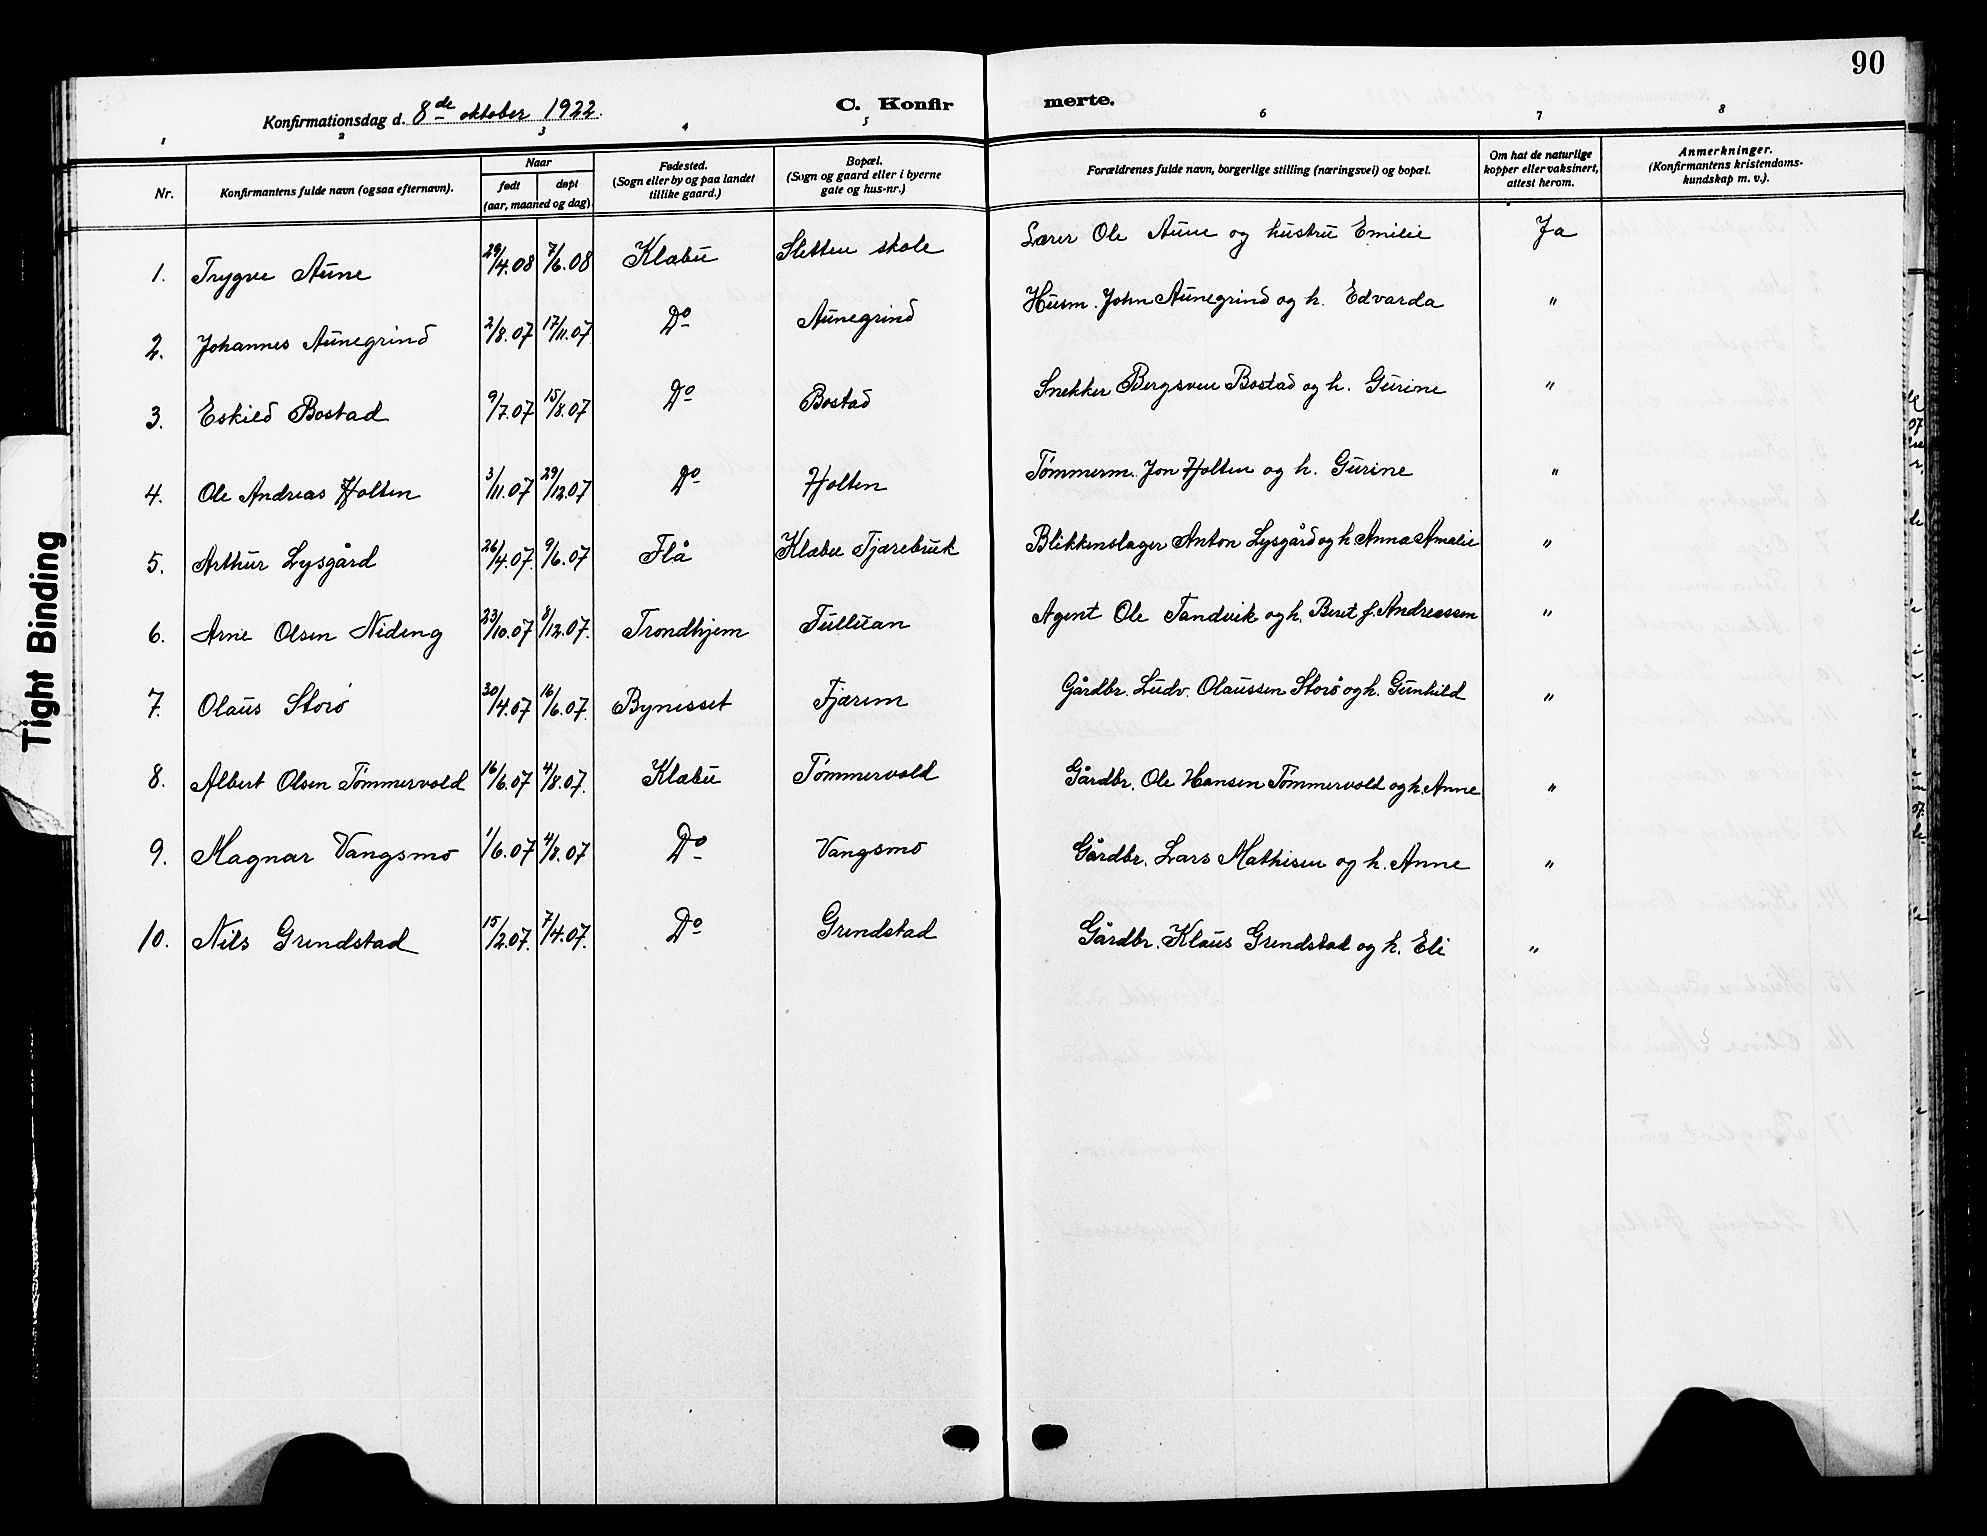 90
Konfirmationsdag d. 8de oktober 1922.
C. Konfirmerte.
1 2 3 4 5 6 7 8
Nr.
Konfirmantens fulde navn (ogsaa efternavn).
Naar
født døpt
(aar, maaned og dag)
Fødested.
(Sogn eller by og paa landet
tillike gaard.)
Bopæl.
(Sogn og gaard eller i byerne
gate og hus-nr.)
Forældrenes fulde navn, borgerlige stilling (næringsvei) og bopæl.
Om hat de naturlige
kopper eller vaksinert,
attest herom.
Anmerkninger.
(Konfirmantens kristendoms-
kundskap m. v.).
1. Trygve Aune 29/4.08 7/6.08 Klæbu Sletten skole Lærer Ole Aune og hustru Emilie Ja
2. Johannes Aunegrind 2/8.07 17/11.07 Do Aunegrind Husm. John Aunegrind og h. Edvarda "
3. Eskild Bostad 9/7.07 15/8.07 Do Bostad Snekker Bergsven Bostad og h. Gurine "
4. Ole Andreas Holten 3/11.07 29/12.07 Do Holten Tømmerm. Jon Holten og h. Gurine "
5. Arthur Lysgård 26/4.07. 9/6.07 Flå Klæbu Tjærebruk Blikkenslager Anton Lysgård og h. Anna Amalie "
6. Arne Olsen Nideng 23/10.07 8/12.07. Trondhjem Tullutan Agent Ole Tandvik og h. Beret f. Andreassen "
7. Olaus Storø 30/4.07 16/6.07. Bynesset Fjærem Gårdbr. Ludv. Olaussen Storø og h. Gunhild "
8. Albert Olsen Tømmervold 16/6.07 4/8.07. Klæbu Tømmervold Gårdbr. Ole Hansen Tømmervold og h. Anne "
9. Magnar Vangsmo 1/6.07 4/8.07 Do Vangsmo Gårdbr. Lars Mathisen og h. Anne "
10. Nils Grendstad 15/2.07. 7/4.07. Do Grendstad Gårdbr. Klaus Grendstad og h. Eli "
Tight Binding